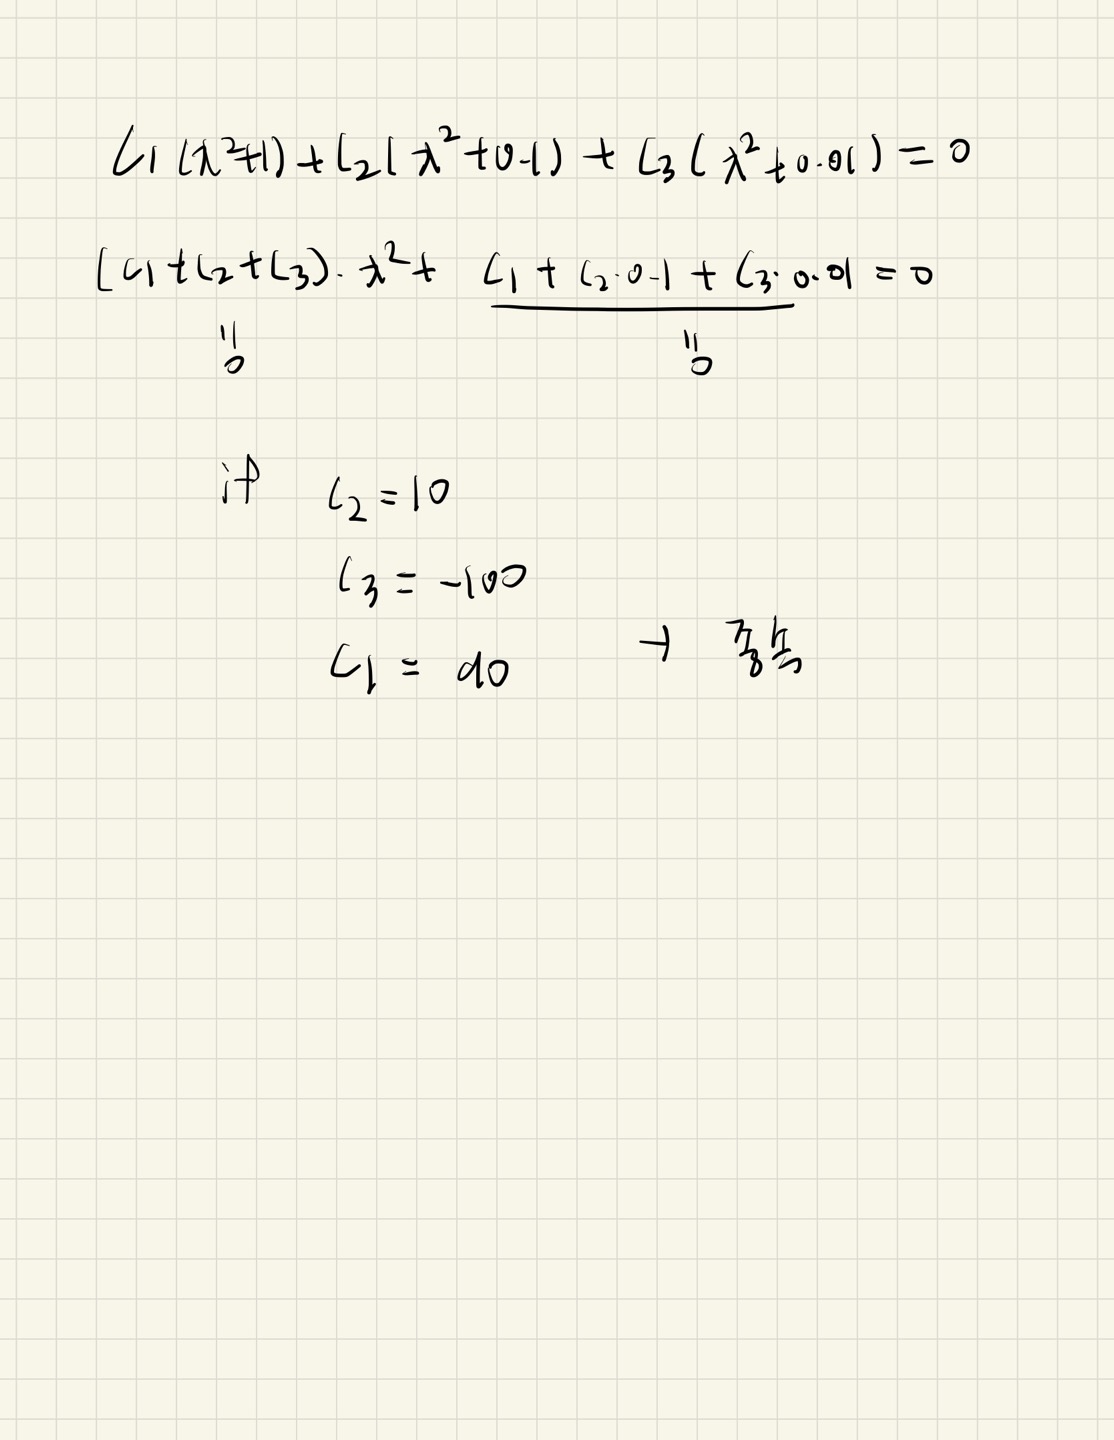 C₁(λ²+1)+C₂(λ²+0.1) + C₃(λ²+0.01) = 0
(C₁+C₂+C₃)·λ²+ C₁ + C₂·0.1 + C₃·0.01 = 0
"0 "0
if C₂ = 10
C₃ = -100
C₁ = 90 → 종속